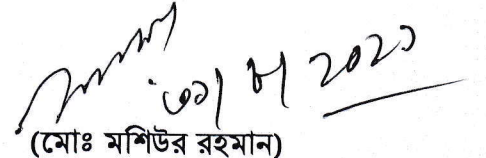 ৩১/৮/২০২১
(মোঃ মশিউর রহমান)